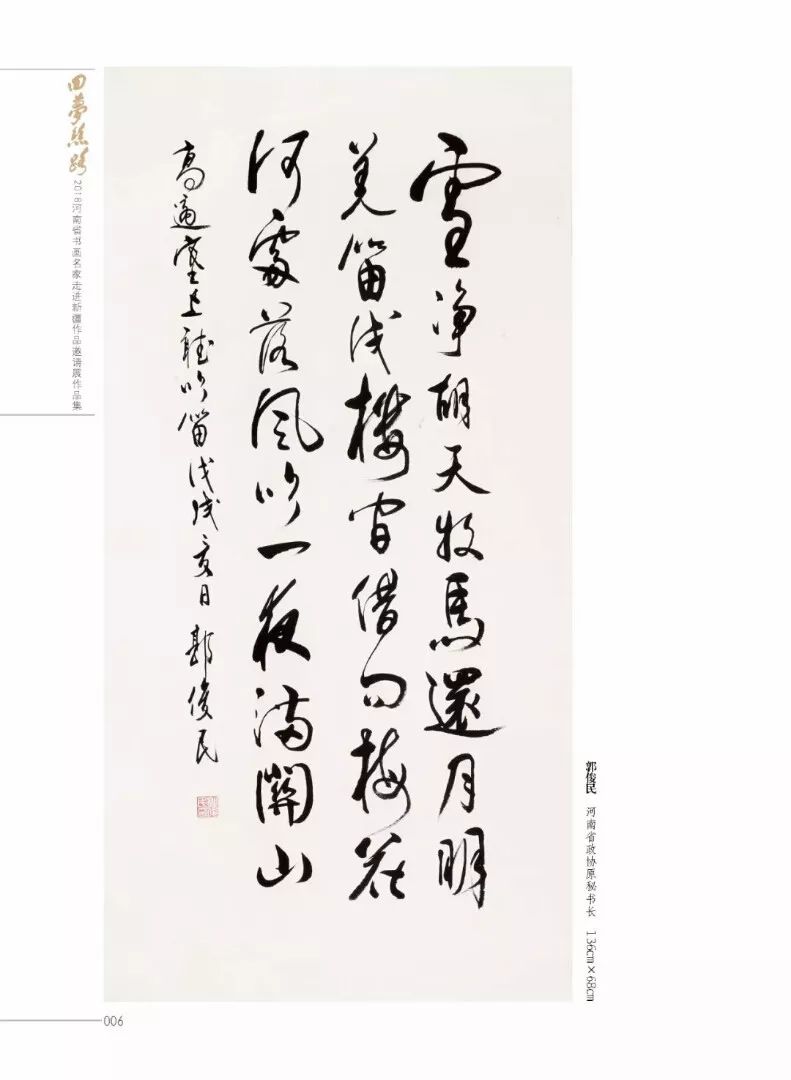 回夢絲路
2018河南省书画名家走进新疆作品邀请展作品集
雪淨胡天牧馬還月明
羌笛戍樓間借問梅花
何處落風吹一夜滿關山
高適塞上聽吹笛戊戌亥日 郭俊民
郭俊民 河南省政协原秘书长 136cm×68cm
006